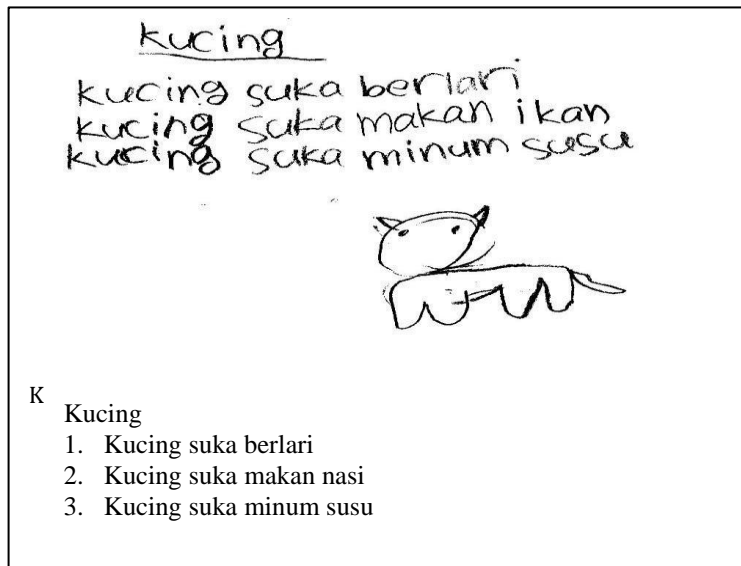 kucing
kucing suka berlari
kucing suka makan ikan
kucing suka minum susu
K
Kucing
1. Kucing suka berlari
2. Kucing suka makan nasi
3. Kucing suka minum susu